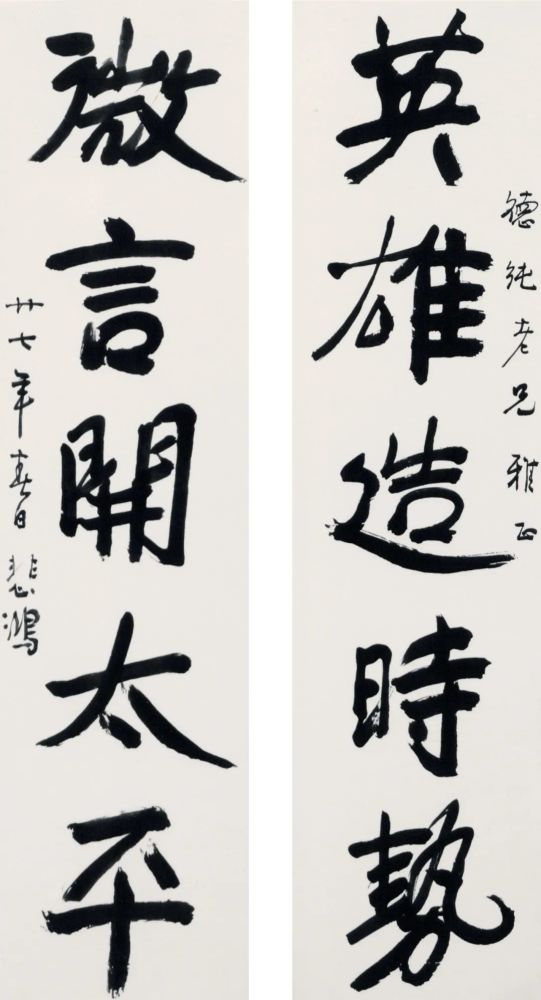 英雄造時勢
德純老兄雅正
微言開太平
廿七年春日悲鴻